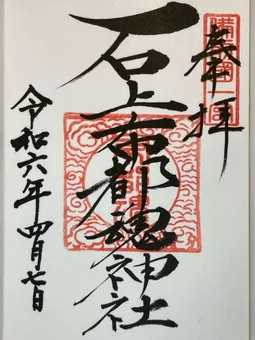 奉拝
石上布都魂神社
令和六年四月七日